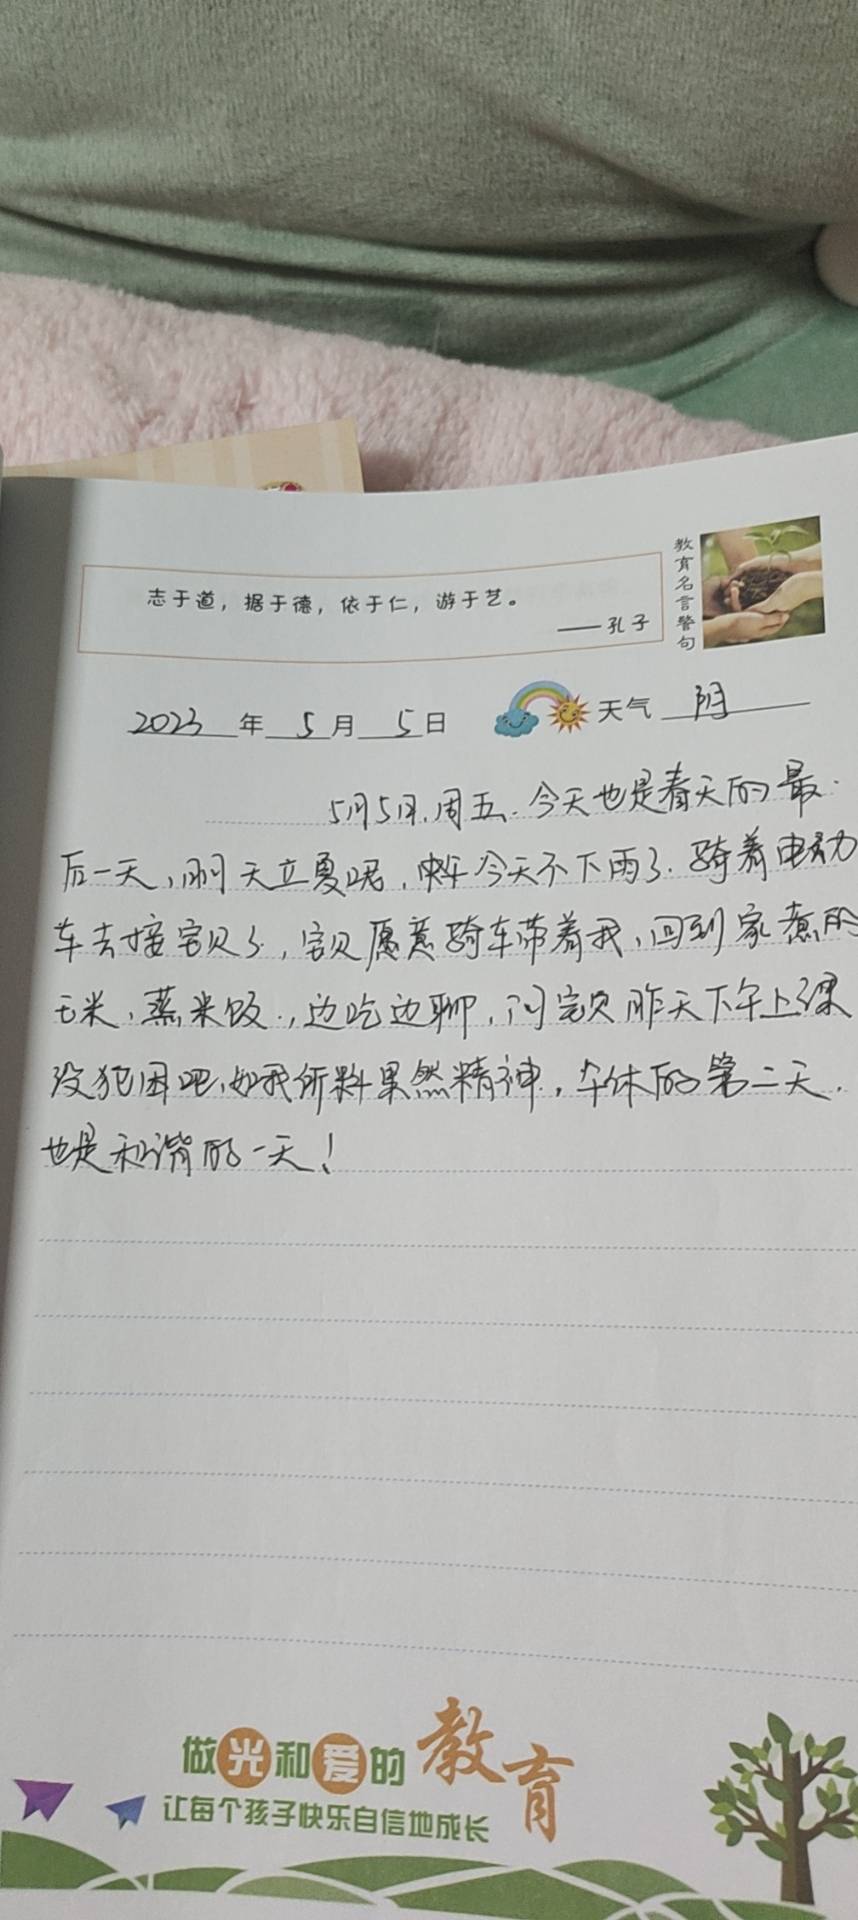 志于道，据于德，依于仁，游于艺。
——孔子
教育名言警句
2023年5月5日
天气 阴
5月5日.周五.今天也是春天的最
后一天,明天立夏呢,今天不下雨了.骑着电动
车去接宝贝了,宝贝愿意骑车带着我,回到家煮的
玉米,蒸米饭.,边吃边聊,问宝贝昨天下午上课
没犯困吧,如我所料果然精神,午休的第二天,
也是和谐的一天!
做光和爱的教育
让每个孩子快乐自信地成长